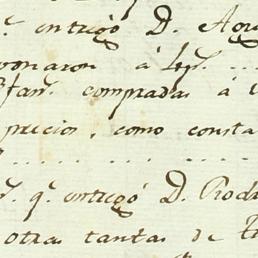 q.ᵉ entregó D. Agu
onaron á los
fan.ˢ compradas á
precios, como consta
q.ᵉ entregó D. Rodr
otras tantas de